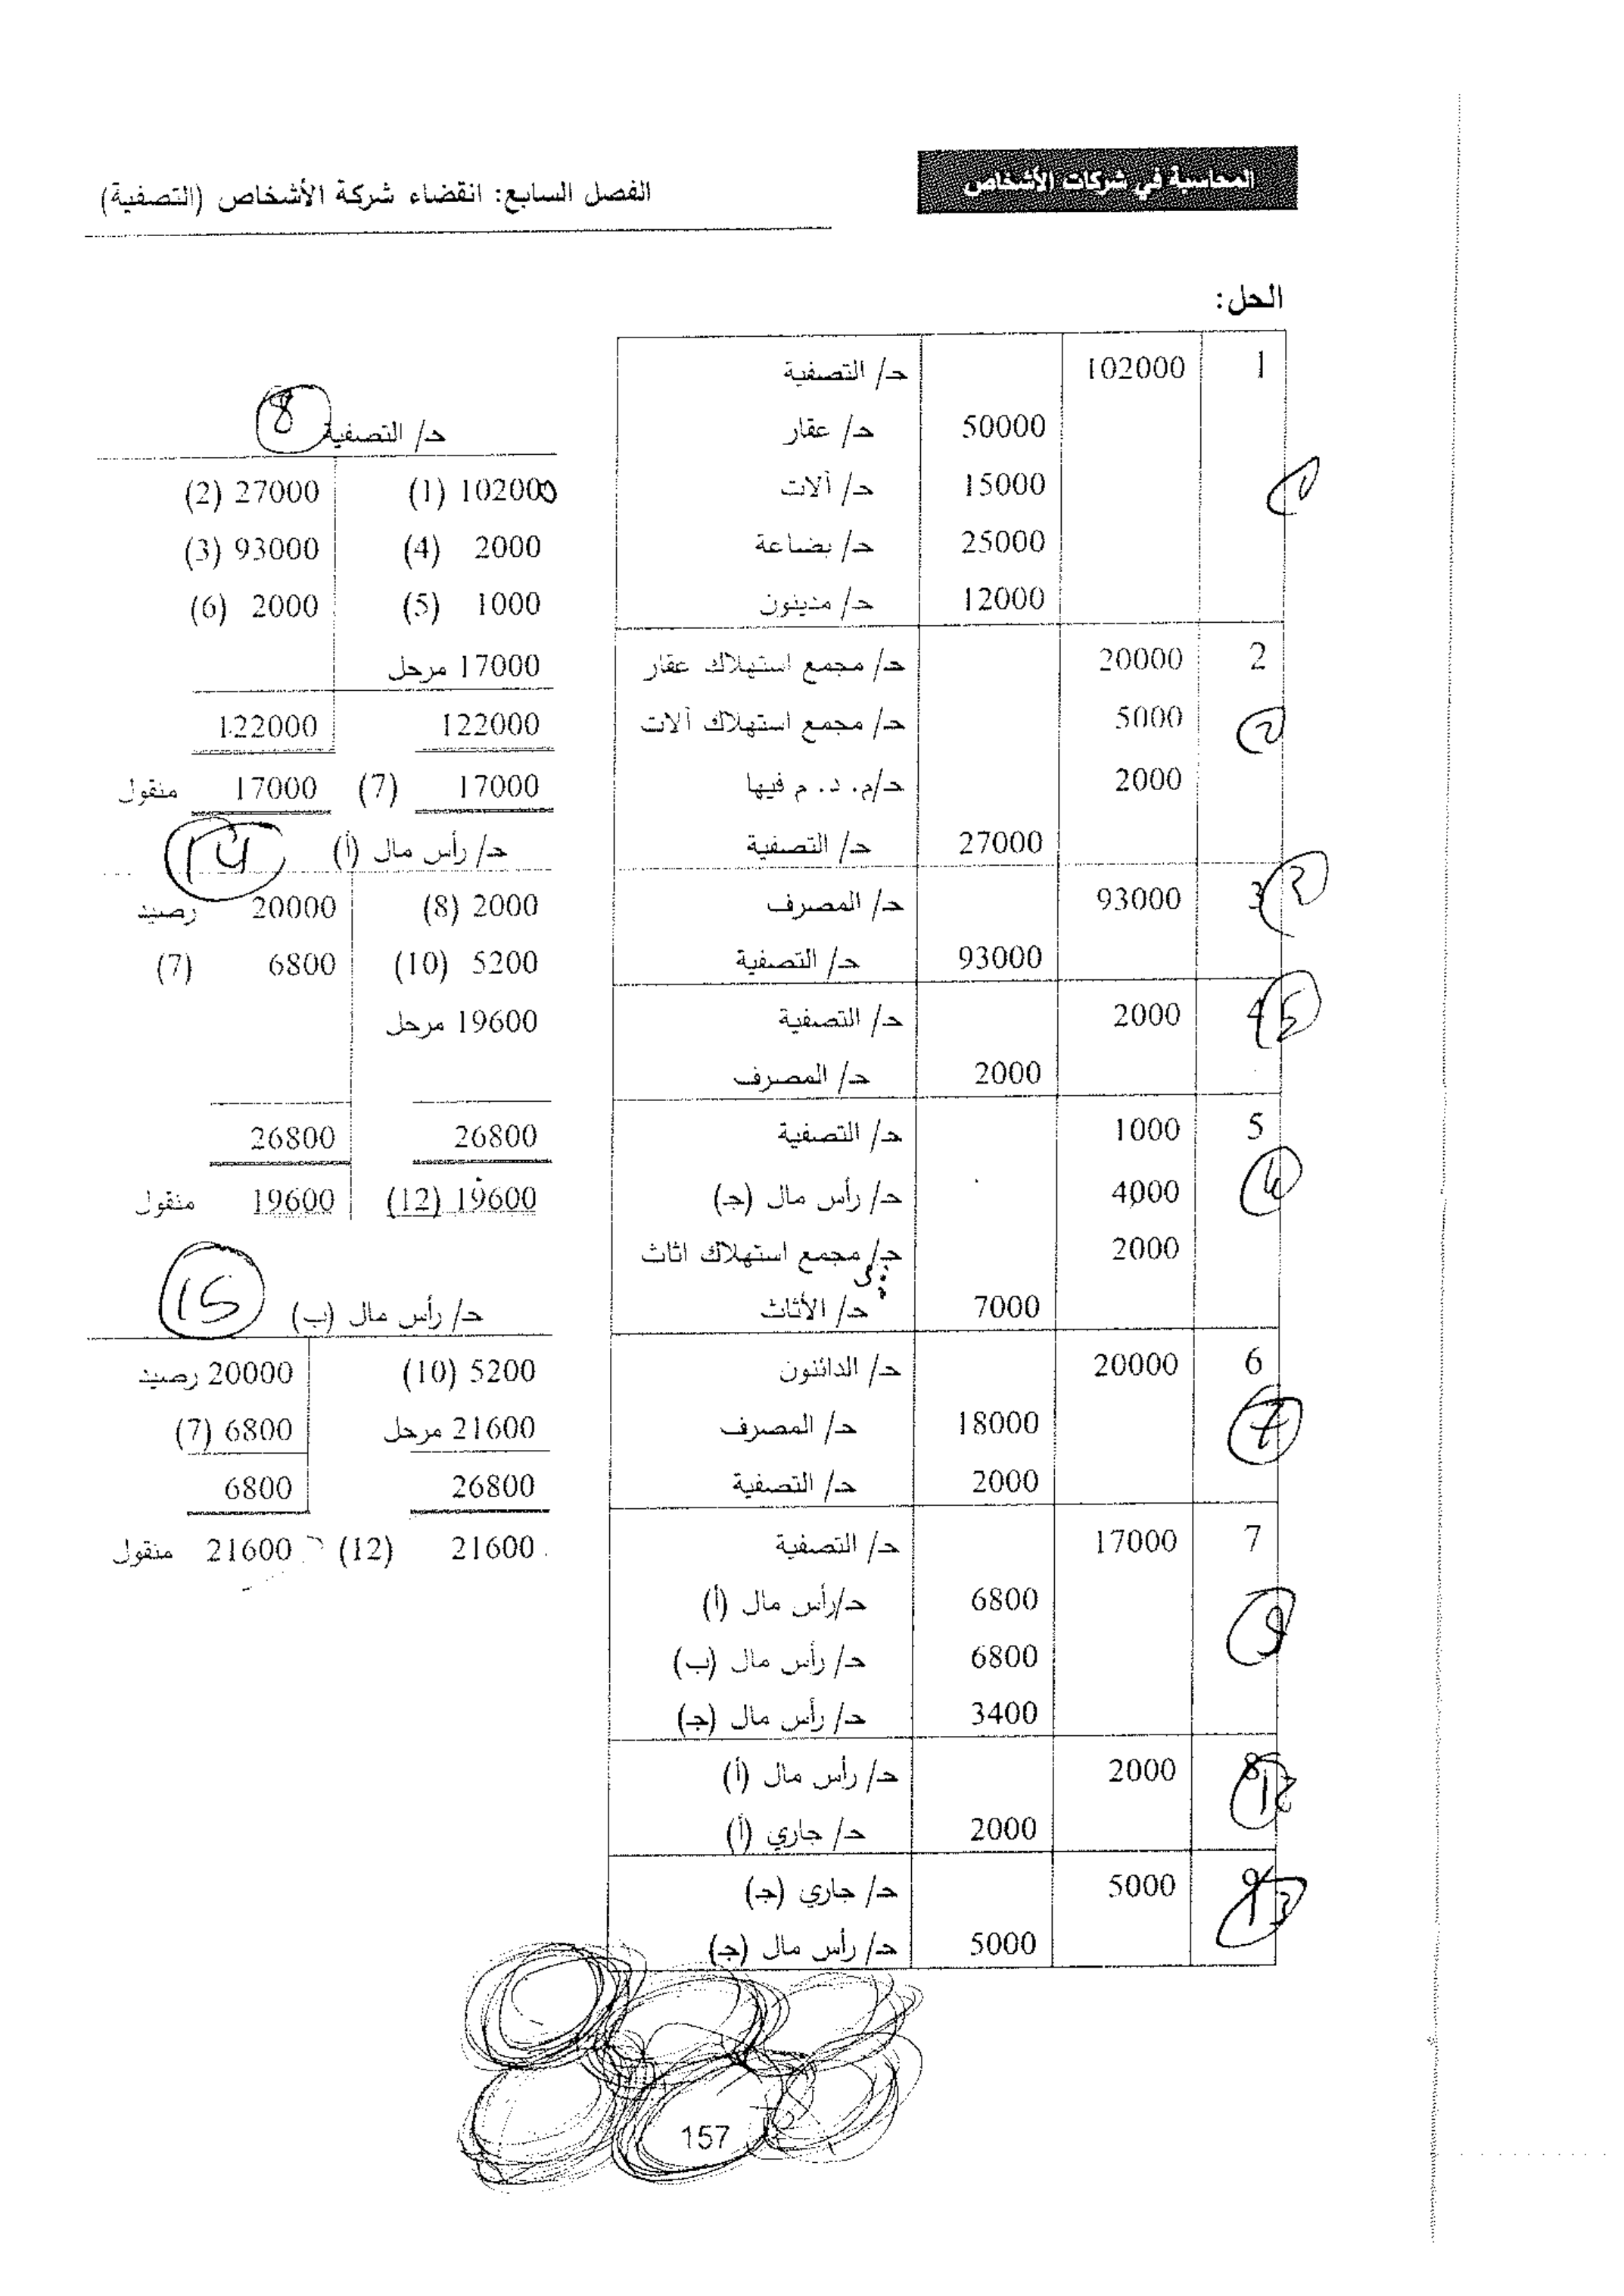 المحاسبة في شركات الأشخاص
الفصل السابع: انقضاء شركة الأشخاص (التصفية)
الحل:
1 102000 حـ/ التصفية
50000 حـ/ عقار
15000 حـ/ آلات
25000 حـ/ بضاعة
12000 حـ/ مدينون
1
2 20000 حـ/ مجمع استهلاك عقار
5000 حـ/ مجمع استهلاك آلات
2000 حـ/م. د. م فيها
27000 حـ/ التصفية
2
3 93000 حـ/ المصرف
93000 حـ/ التصفية
3
4 2000 حـ/ التصفية
2000 حـ/ المصرف
5
5 1000 حـ/ التصفية
4000 حـ/ رأس مال (جـ)
2000 حـ/ مجمع استهلاك اثاث
7000 حـ/ الأثاث
6 20000 حـ/ الدائنون
18000 حـ/ المصرف
2000 حـ/ التصفية
7
7 17000 حـ/ التصفية
6800 حـ/رأس مال (أ)
6800 حـ/ رأس مال (ب)
3400 حـ/ رأس مال (جـ)
9
8 2000 حـ/ رأس مال (أ)
2000 حـ/ جاري (أ)
12
9 5000 حـ/ جاري (جـ)
5000 حـ/ رأس مال (جـ)
13
حـ/ التصفية 8
102000 (1) 27000 (2)
2000 (4) 93000 (3)
1000 (5) 2000 (6)
17000 مرحل
122000 122000
17000 (7) 17000 منقول
حـ/ رأس مال (أ) 14
2000 (8) 20000 رصيد
5200 (10) 6800 (7)
19600 مرحل
26800 26800
19600 (12) 19600 منقول
حـ/ رأس مال (ب) 15
5200 (10) 20000 رصيد
21600 مرحل 6800 (7)
26800 6800
21600 (12) 21600 منقول
157